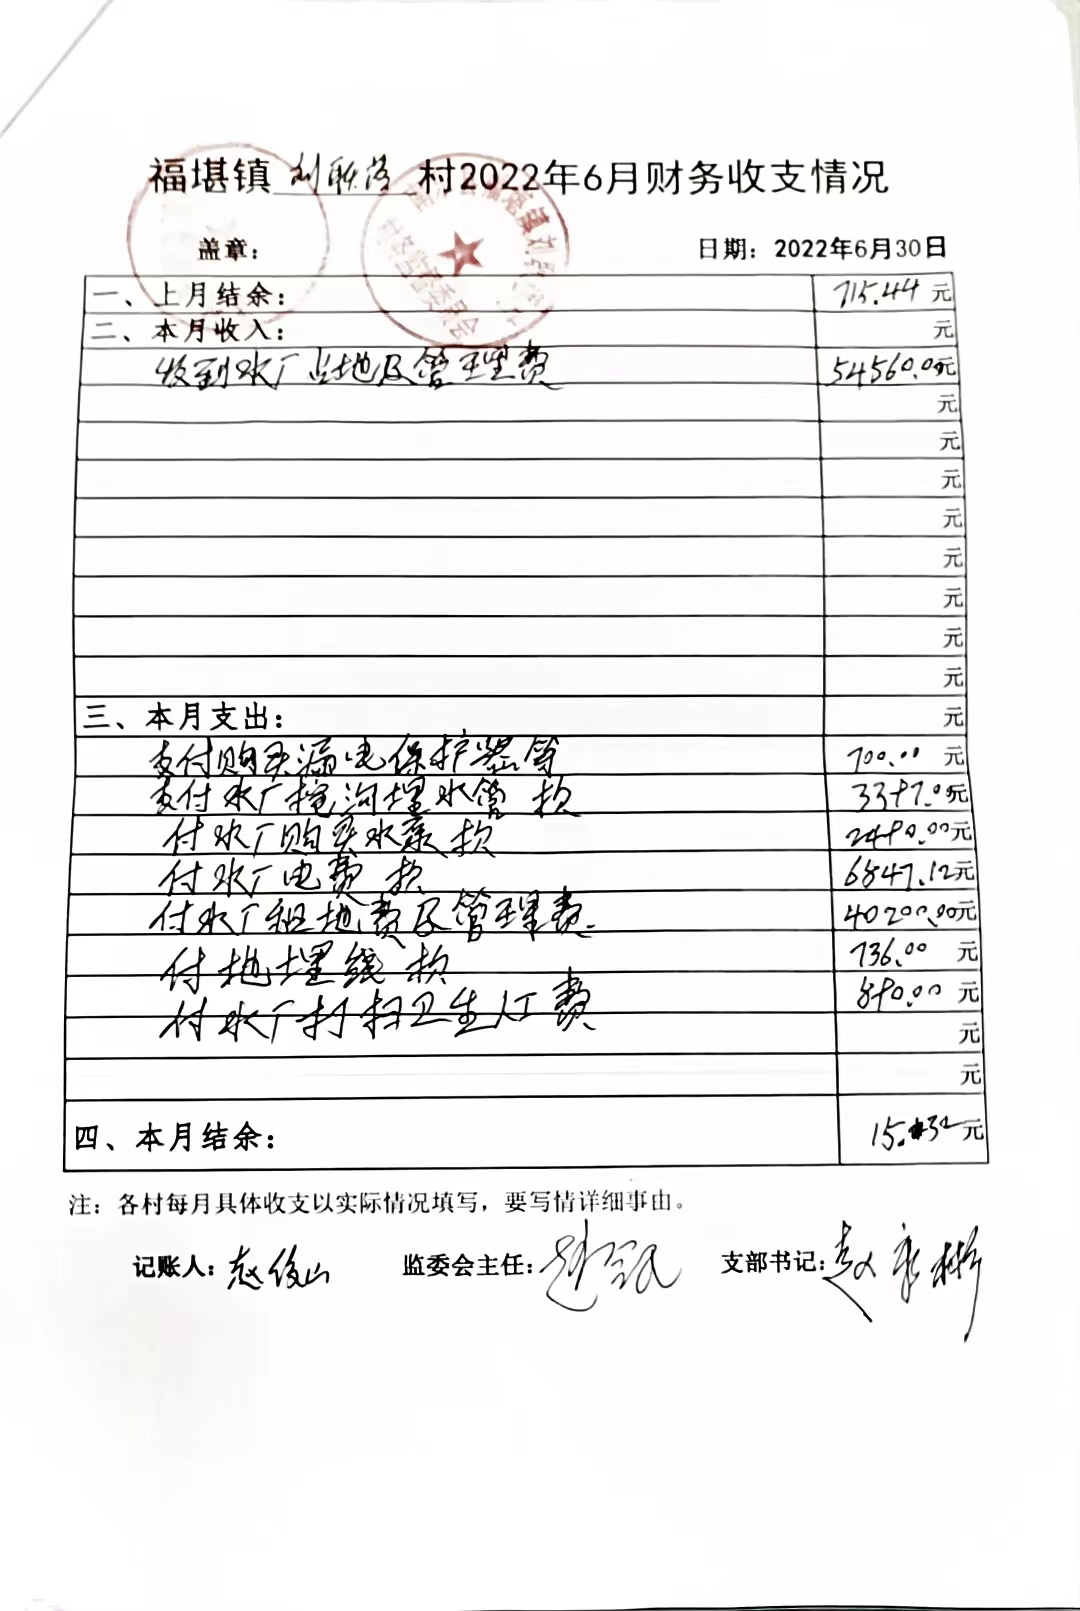 福堪镇 刘联落 村2022年6月财务收支情况
盖章： 日期：2022年6月30日
一、上月结余： 715.44 元
二、本月收入： 元
收到水厂占地及管理费 54560.00元
元
元
元
元
元
元
元
元
三、本月支出： 元
支付购买漏电保护器等 700.00 元
支付水厂挖沟埋水管款 3397.00元
付水厂购买水泵款 2490.00元
付水厂电费款 6847.12元
付水厂租地费及管理费 40200.00元
付地埋线款 736.00 元
付水厂打扫卫生人工费 890.00 元
元
元
四、本月结余： 15.32元
注：各村每月具体收支以实际情况填写，要写情详细事由。
记账人：赵俊山 监委会主任：赵 支部书记：赵彦彬